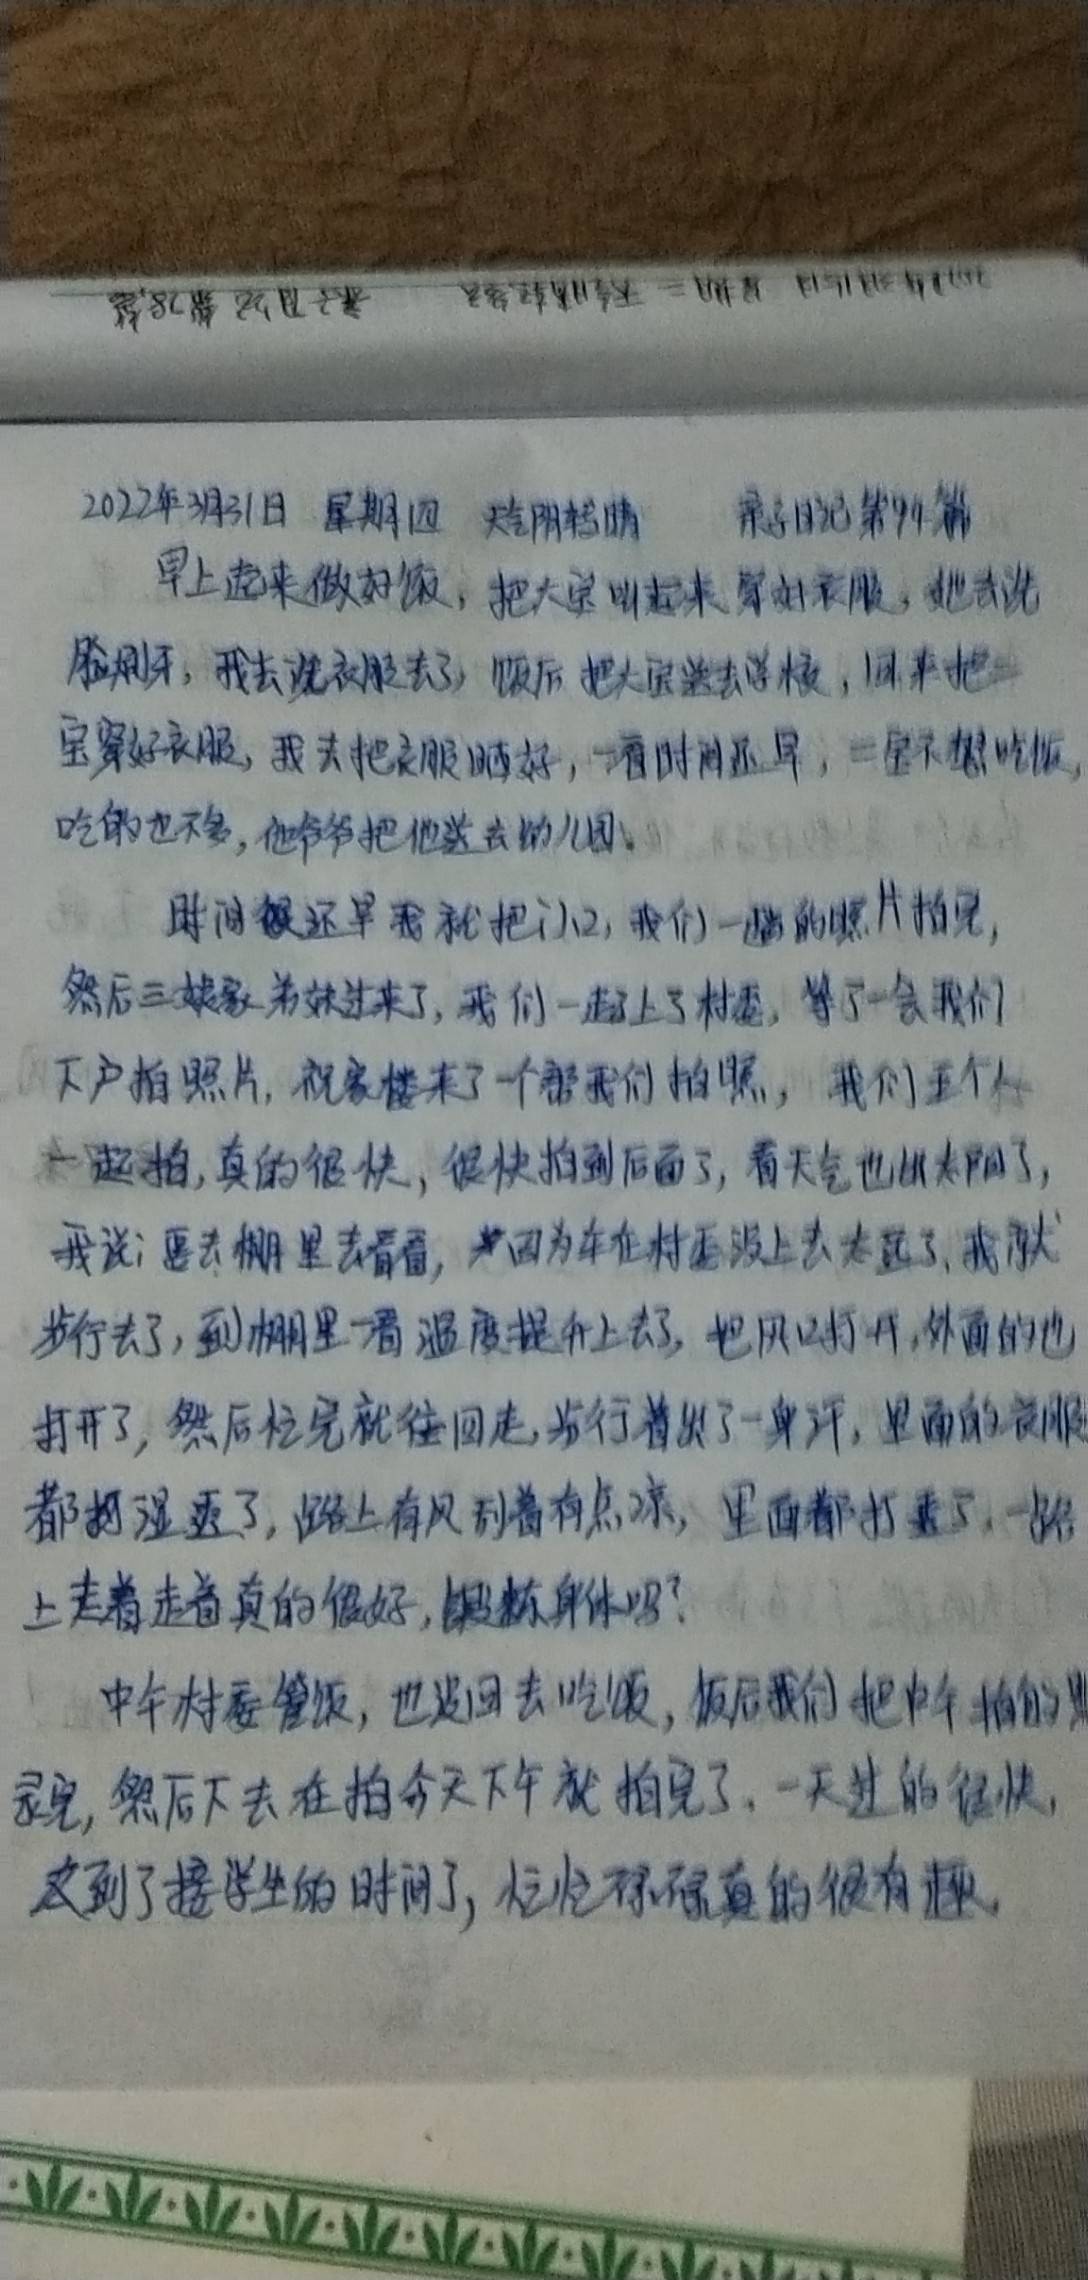 2022年3月31日 星期四 天气阴转晴 亲子日记第94篇
早上起来做好饭，把大宝叫起来穿好衣服，她去洗
脸刷牙，我去洗衣服去了，饭后把大宝送去学校，回来把二
宝穿好衣服，我去把衣服晒好，一看时间还早，二宝不想吃饭，
吃的也不多，他爷爷把他送去幼儿园。
时间还早我就把我们一起的照片拍完，
然后三娘家弟妹过来了，我们一起上了村委，等了一会我们
下户拍照片，祝家楼来了一个帮我们拍照，我们五个人
一起拍，真的很快，很快拍到后面了，看天气也出太阳了，
我说：要去棚里去看看，因为车在村委没上去太远了，我就
步行去了，到棚里一看温度提升上去了，把风口打开，外面的也
打开了，然后忙完就往回走，步行着出了一身汗，里面的衣服
都湿透了，路上有风刮着有点凉，里面都打透了，一路
上走着走着真的很好，锻炼身体吗？
中午村委管饭，也没回去吃饭，饭后我们把中午拍的照
录完，然后下去在拍今天下午就拍完了，一天过的很快，
又到了接学生的时间了，忙忙碌碌真的很有趣。